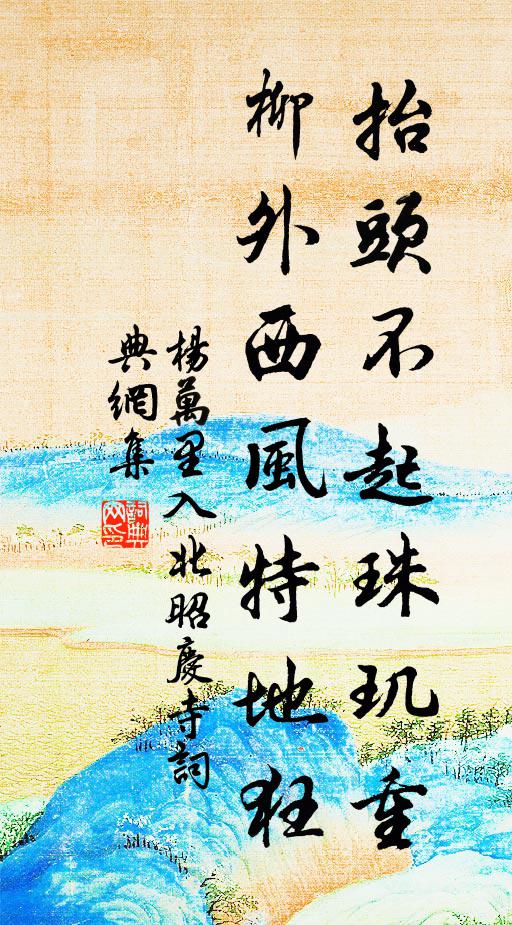 抬頭不起珠玑重
柳外西風特地狂
楊萬里入北昭慶寺詞
典網集
詞典网印